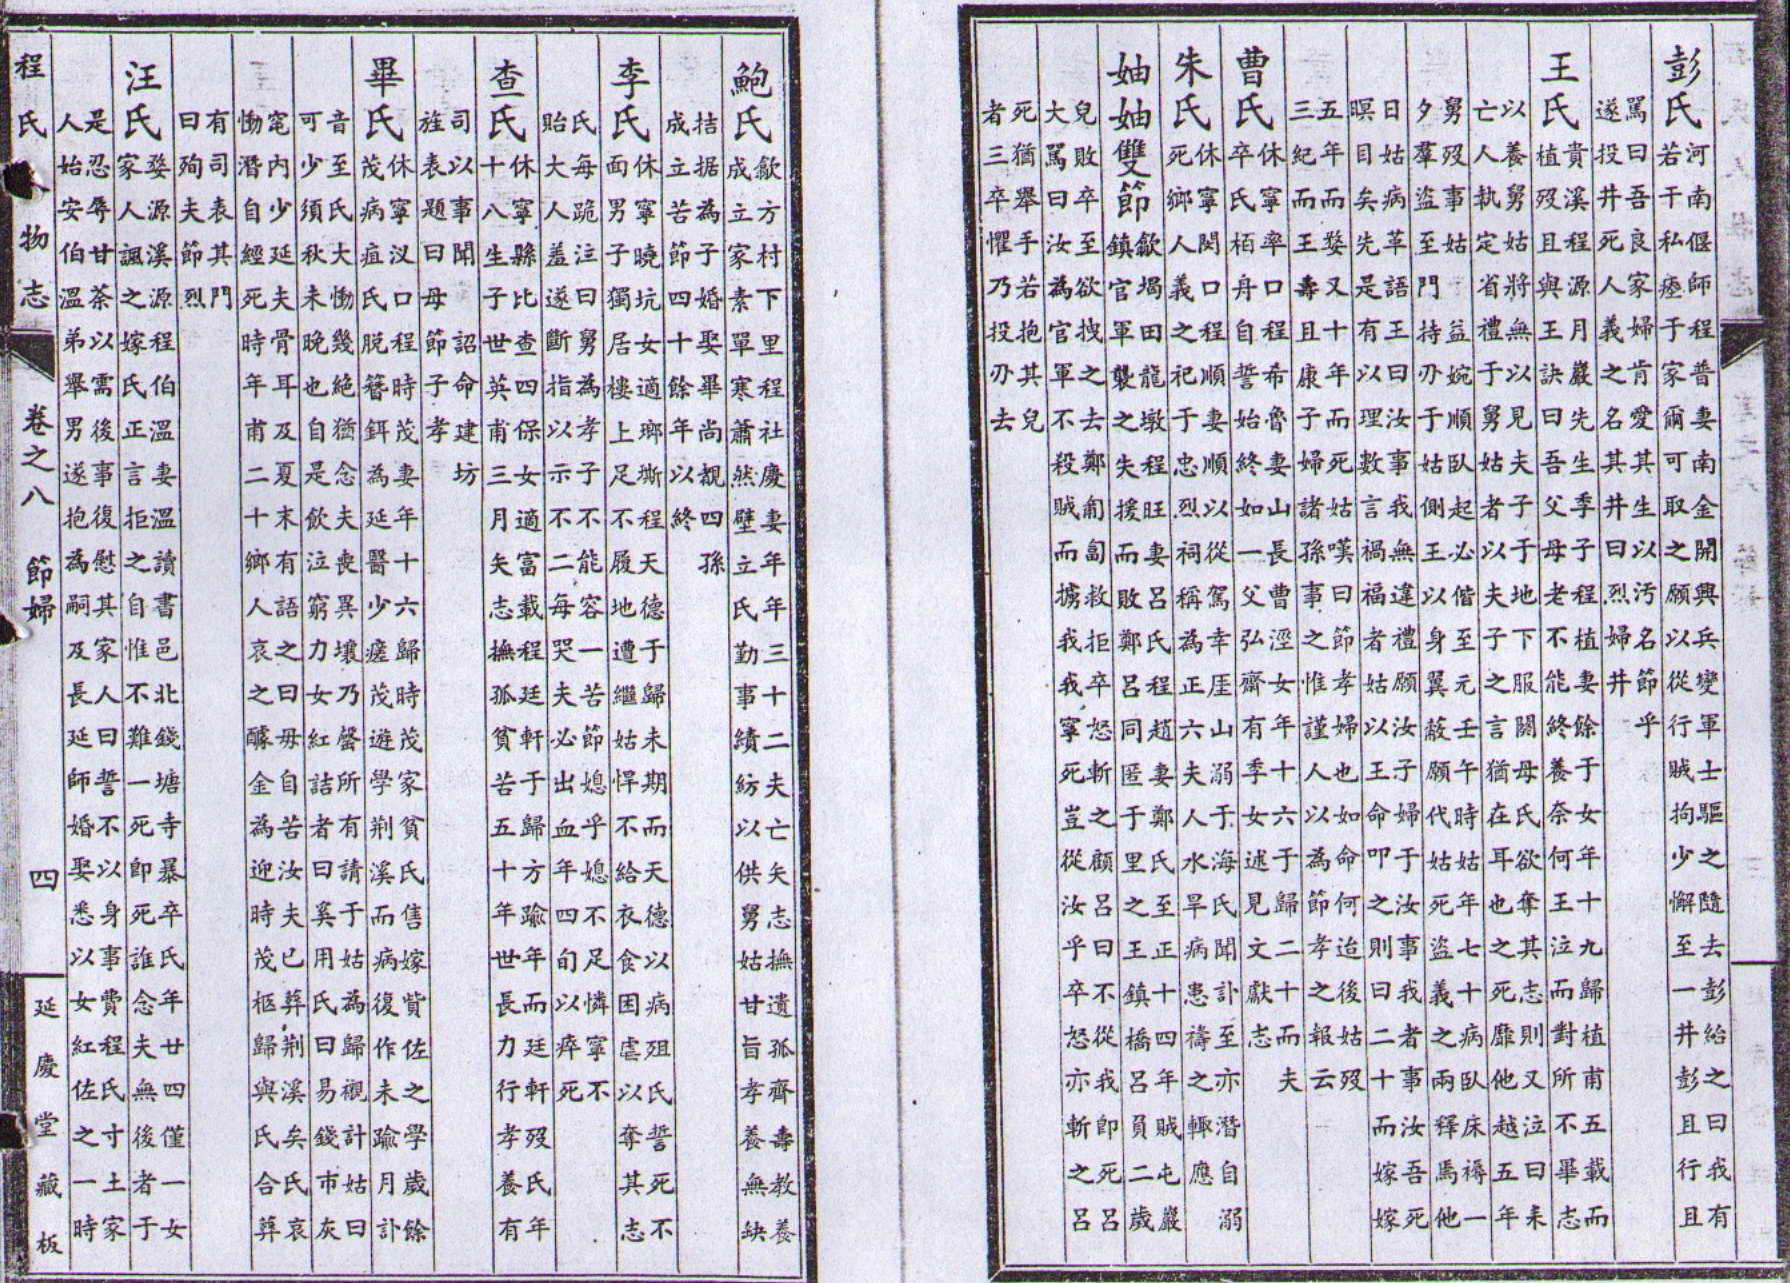 彭氏
河南偃師程普妻南金開興兵變軍士驅之隨去彭紿之曰我有
若干私瘞于家爾可取之願以從行賊拘少懈至一井彭且行且
罵曰吾良家婦肯愛其生以汚名節乎
遂投井死人義之名其井曰烈婦井
王氏
貴溪程源月巖先生季子程植妻餘于女年十九歸植甫五載而
植歿且與王訣曰吾父母老不能終養奈何王泣而對所不畢志
以養舅姑將無以見夫子于地下服闋母氏欲奪其志則又泣曰未
亡人執定省禮于舅姑者以夫子之言猶在耳也之死靡他越五年
舅歿事姑益婉順臥起必偕至元壬午時姑年七十病臥床褥一
夕羣盜至門持刃于姑側王以身翼蔽願代姑死盜義之兩釋焉他
日姑病革語王曰汝事我無違禮願汝子婦于汝事我者事汝吾死
暝目矣先是有以理數言禍福者姑以王命叩之則曰二十而嫁嫁
五年而婺又十年而死姑嘆曰節孝婦也如命何迨後姑歿
三紀而王壽且康子婦諸孫事之惟謹人以為節孝之報云
曹氏
休寧率口程希魯妻山長曹涇女年十六于歸二十而夫
卒氏栢舟自誓始終如一父弘齋有季女述見文獻志
朱氏
休寧閔口程順妻順以從駕幸厓山溺于海氏聞訃至亦潛自溺
死鄉人義之祀于忠烈祠稱為正六夫人水旱病患禱之輙應
妯妯雙節
歙堨田龍墩程旺妻呂氏程趙妻鄭氏至正十四年賊屯巖
鎮官軍襲之失援而敗鄭呂同匿于里之王鎮橋呂員二歲
兒敗卒至欲拽之去鄭匍匐救拒卒怒斬之顧呂曰不從我即死呂
大罵曰汝為官軍不殺賊而擄我我寧死豈從汝乎卒怒亦斬之呂
死猶舉手若抱其兒
者三卒懼乃投刃去
鮑氏
歙方村下里程社慶妻年年三十二夫亡矢志撫遺孤齊壽教養
成立家素單寒蕭然壁立氏勤事績紡以供舅姑甘旨孝養無缺
拮据為子婚娶畢尚覩四孫
成立苦節四十餘年以終
李氏
休寧曉坑女適瑯斯程天德于歸未期而天德以病殂氏誓死不
面男子獨居樓上足不履地遭繼姑悍不給衣食困虐以奪其志
氏每跪注曰舅為孝子不能容一苦節媳乎媳不足憐寧不
貽大人羞遂斷指以示不二每哭夫必出血年四旬以瘁死
查氏
休寧縣比查四保女適富載程廷軒于歸方踰年而廷軒歿氏年
十八生子世英甫三月矢志撫孤貧苦五十年世長力行孝養有
司以事聞 詔命建坊
旌表題曰母節子孝
畢氏
休寧汊口程時茂妻年十六歸時茂家貧氏售嫁貲佐之學歲餘
茂病疽氏脫簪鉺為延醫少瘥茂遊學荆溪而病復作未踰月訃
音至氏大慟幾絕猶念夫喪異壤乃罄所有請于姑為歸櫬計姑曰
可少須秋未晚也自是飲泣窮力女紅詰者曰奚用氏曰易錢市灰
窀內少延夫骨耳及夏末有語之曰毋自苦汝夫已葬荆溪矣氏哀
慟潛自經死時年甫二十鄉人哀之醵金為迎時茂柩歸與氏合葬
有司表其門
曰殉夫節烈
汪氏
婺源溪源程伯溫妻溫讀書邑北錢塘寺暴卒氏年廿四僅一女
家人諷之嫁氏正言拒之自惟不難一死即死誰念夫無後者于
是忍辱甘荼以需後事復慰其家人曰誓不以身事費程氏寸土家
人始安伯溫弟舉男遂抱為嗣及長延師婚娶悉以女紅佐之一時
程氏人物志 卷之八 節婦 四 延慶堂藏板